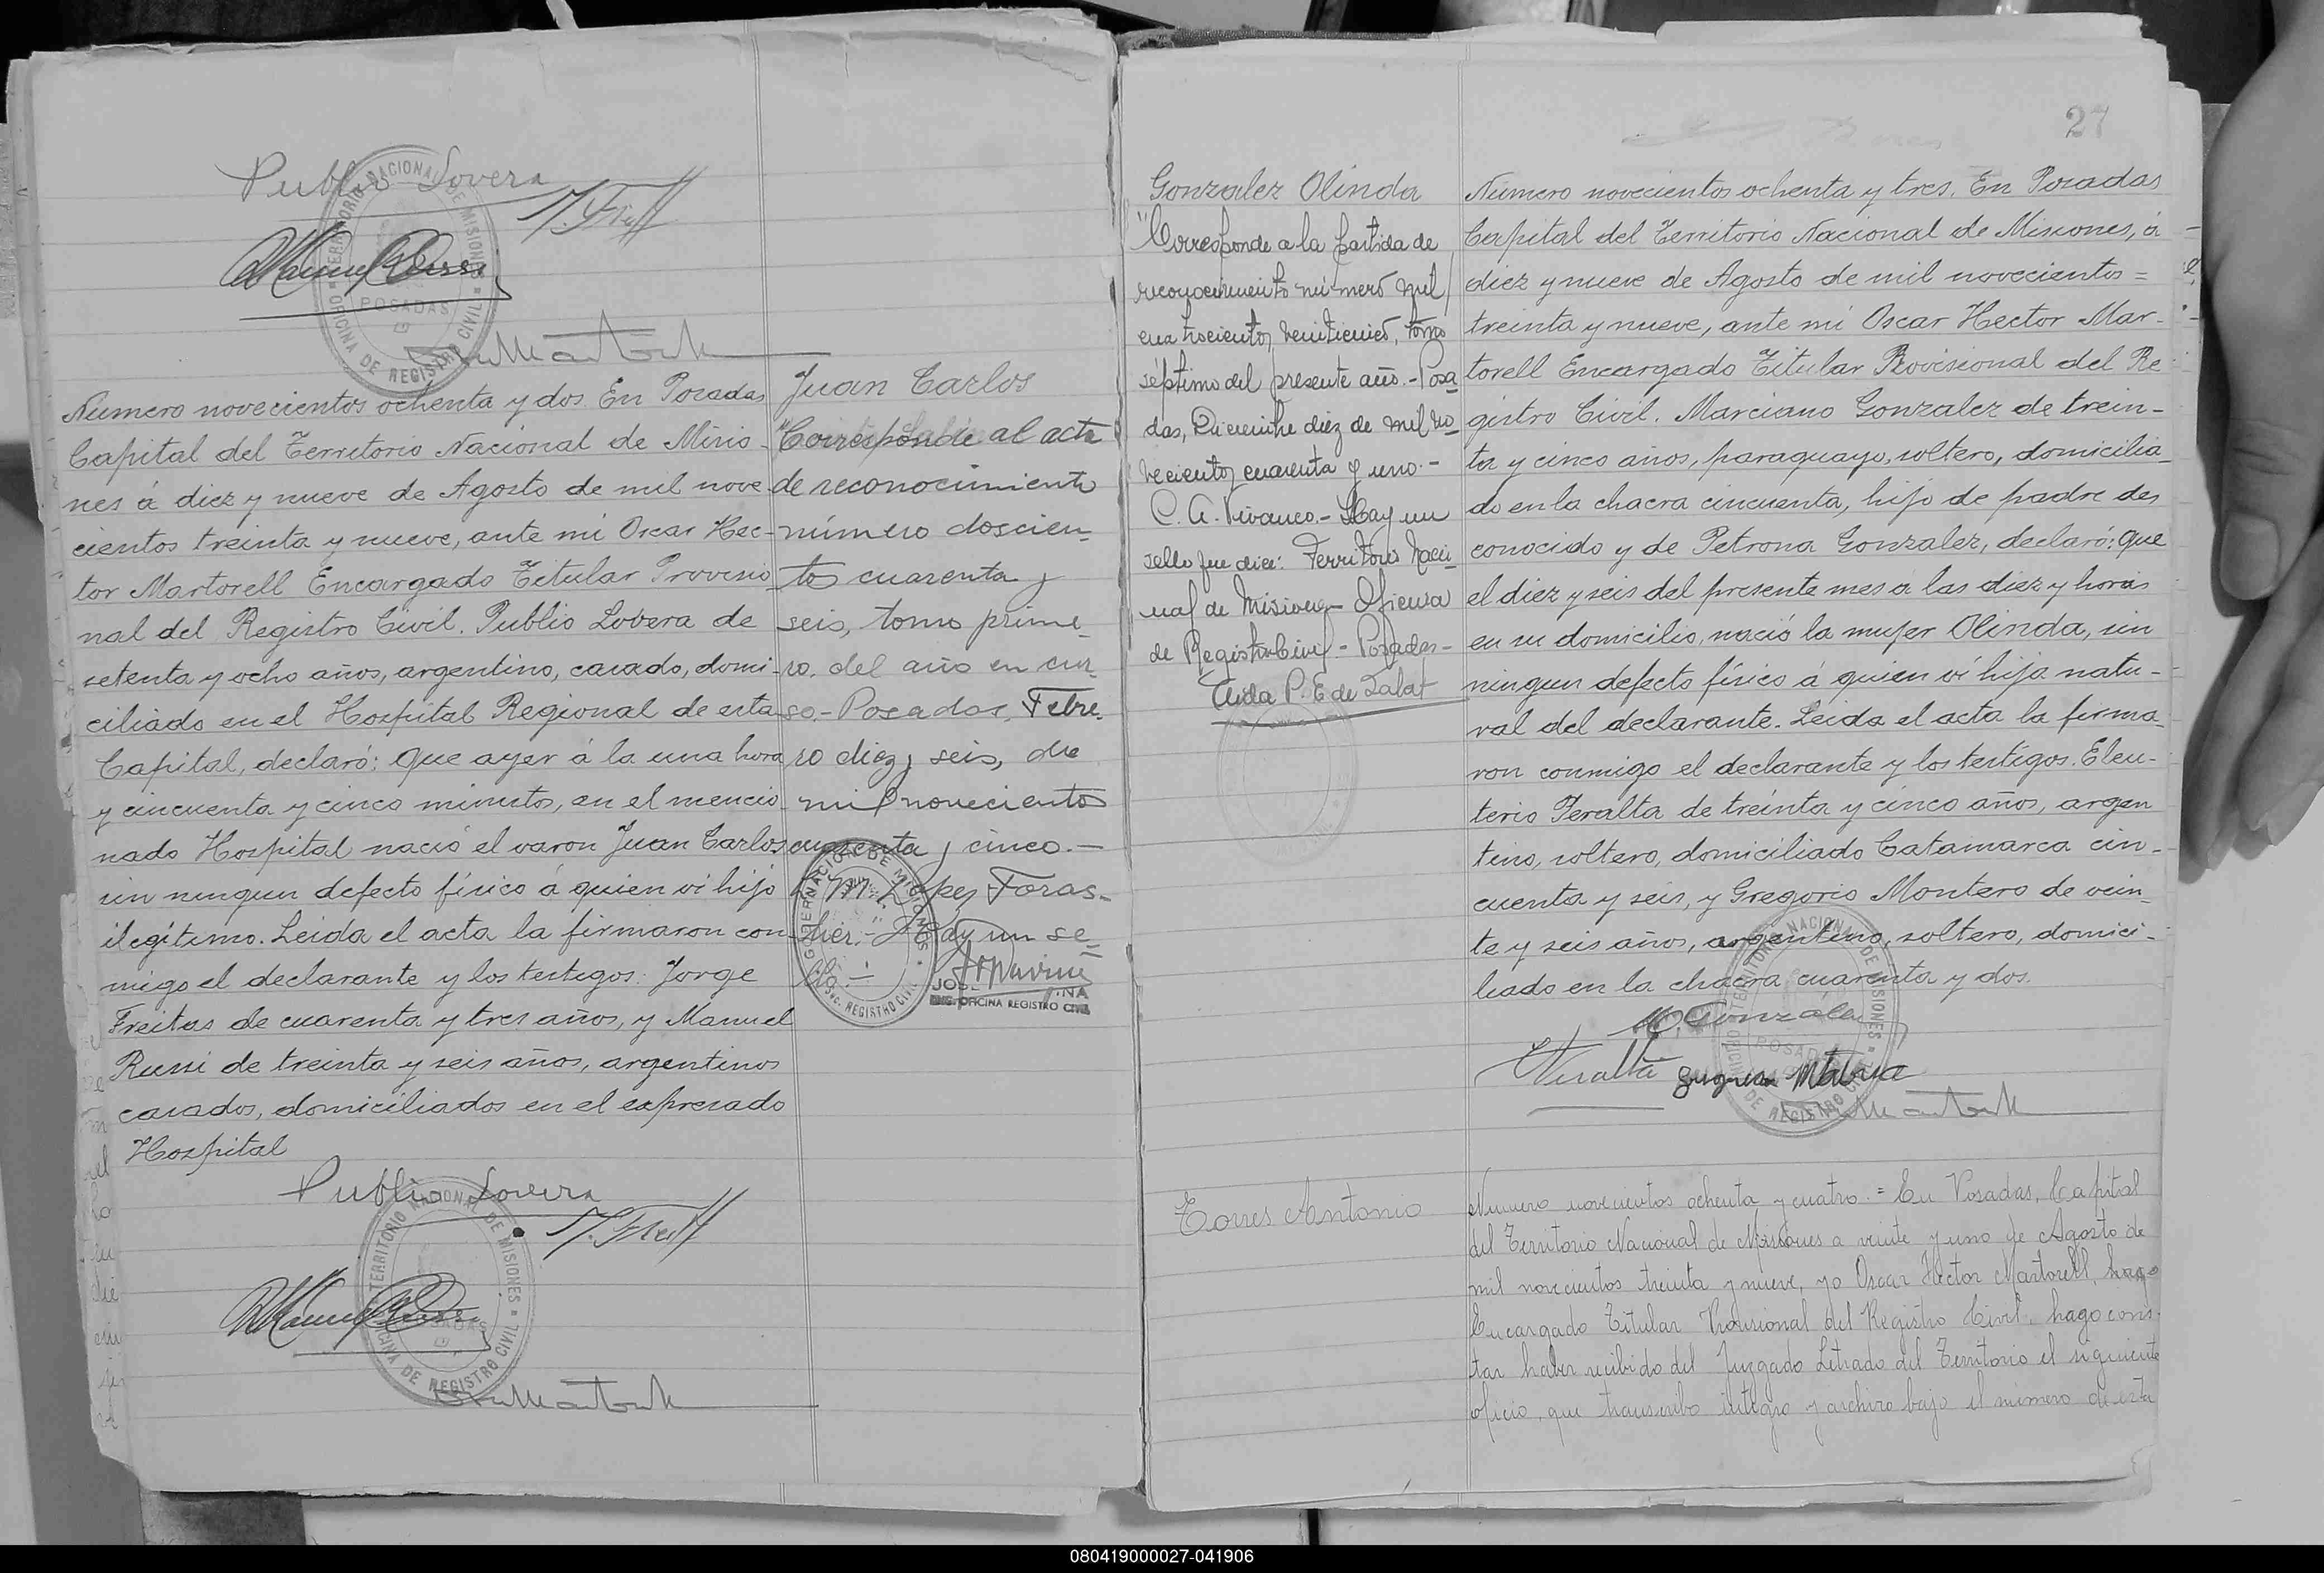 Publio Lovera
J. Freitt
Manuel Russi
TERRITORIO NACIONAL DE MISIONES
POSADAS
OFICINA DE REGISTRO CIVIL
Numero novecientos ochenta y dos. En Posadas
Capital del Territorio Nacional de Misio-
nes á diez y nueve de Agosto de mil nove-
cientos treinta y nueve, ante mi Oscar Hec-
tor Martorell Encargado Titular Provisio
nal del Registro Civil. Publio Lovera de
setenta y ocho años, argentino, casado, domi-
ciliado en el Hospital Regional de esta
Capital, declaró: Que ayer á la una hora
y cincuenta y cinco minutos, en el mencio
nado Hospital nació el varon Juan Carlos
sin ningun defecto físico á quien vi hijo
ilegítimo. Leida el acta la firmaron con-
migo el declarante y los testigos: Jorge
Freitas de cuarenta y tres años, y Manuel
Russi de treinta y seis años, argentinos
casados, domiciliados en el expresado
Hospital
Publio Lovera
J. Freitt
Manuel Russi
TERRITORIO NACIONAL DE MISIONES
OFICINA DE REGISTRO CIVIL
Juan Carlos
"Corresponde al acta
de reconocimiento
número doscien-
tos cuarenta y
seis, tomo prime-
ro, del año en cur
so.- Posadas, Febre-
ro diez y seis, de
mil novecientos
cuarenta y cinco.-
M. Lopez Foras-
tier.- Hay un se-
llo.-
GOBERNACION DE MISIONES
REGISTRO CIVIL
ENC. OFICINA REGISTRO CIVIL
27
Gonzalez Olinda
"Corresponde a la partida de
reconocimiento número mil
cuatrocientos veinticinco, tomo
séptimo del presente año.- Posa
das, Diciembre diez de mil no-
vecientos cuarenta y uno.-
C. A. Vivanco.- Hay un
sello que dice: Territorio Nacio-
nal de Misiones- Oficina
de Registro Civil- Posadas-
Aida P. E. de Zalat
Numero novecientos ochenta y tres. En Posadas
Capital del Territorio Nacional de Misiones, á
diez y nueve de Agosto de mil novecientos =
treinta y nueve, ante mi Oscar Hector Mar-
torell Encargado Titular Provisional del Re
gistro Civil. Marciano Gonzalez de trein-
ta y cinco años, paraguayo, soltero, domicilia-
do en la chacra cincuenta, hijo de padre des
conocido y de Petrona Gonzalez, declaró: que
el diez y seis del presente mes a las diez y horas
en su domicilio, nació la mujer Olinda, sin
ningun defecto físico á quien vi hija natu-
ral del declarante. Leida el acta la firma-
ron conmigo el declarante y los testigos. Eleu-
terio Peralta de treinta y cinco años, argen
tino, soltero, domiciliado Catamarca cin-
cuenta y seis, y Gregorio Montero de vein-
te y seis años, argentino, soltero, domici-
liado en la chacra cuarenta y dos.
M. González
Peralta
TERRITORIO NACIONAL DE MISIONES
POSADAS
OFICINA DE REGISTRO CIVIL
Torres Antonio
Numero novecientos ochenta y cuatro.= En Posadas, Capital
del Territorio Nacional de Misiones a veinte y uno de Agosto de
mil novecientos treinta y nueve, yo Oscar Hector Martorell, hago
Encargado Titular Provisional del Registro Civil, hago cons-
tar haber recibido del Juzgado Letrado del Territorio el siguiente
oficio, que transcribo integro y archivo bajo el número de esta
080419000027-041906